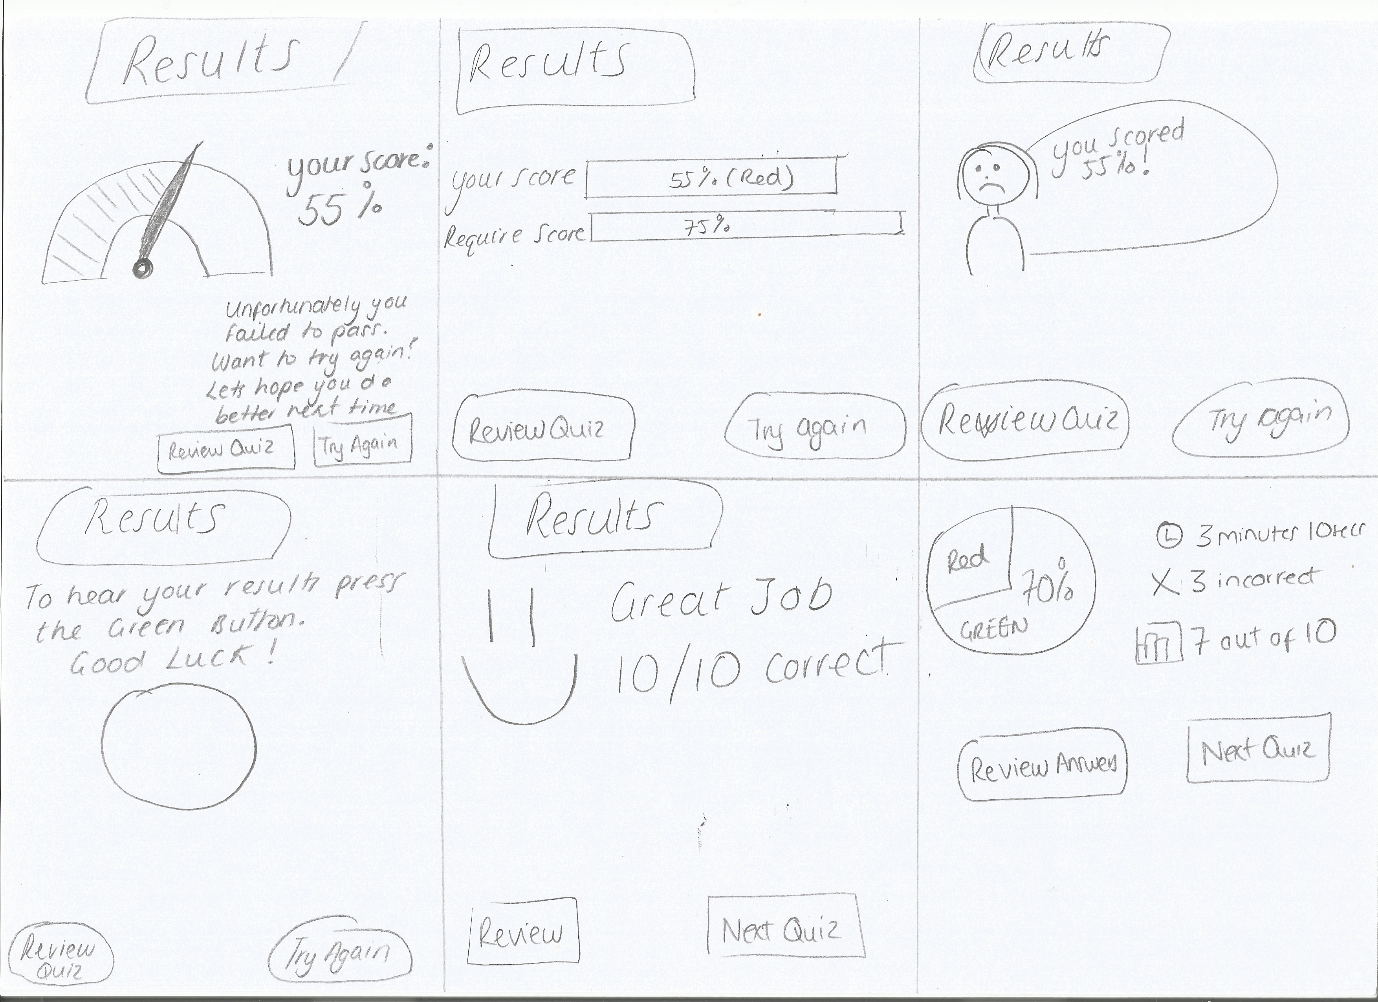 Results
your score:
55%
Unfortunately you
failed to pass.
Want to try again?
Lets hope you do
better next time
Review Quiz
Try Again
Results
your score
55% (Red)
Require Score
75%
Review Quiz
Try again
Results
you scored
55%!
Review Quiz
Try again
Results
To hear your results press
the Green Button.
Good Luck!
Review
Quiz
Try Again
Results
Great Job
10/10 correct
Review
Next Quiz
Red
70%
GREEN
3 minutes 10secs
X 3 incorrect
7 out of 10
Review Answers
Next Quiz